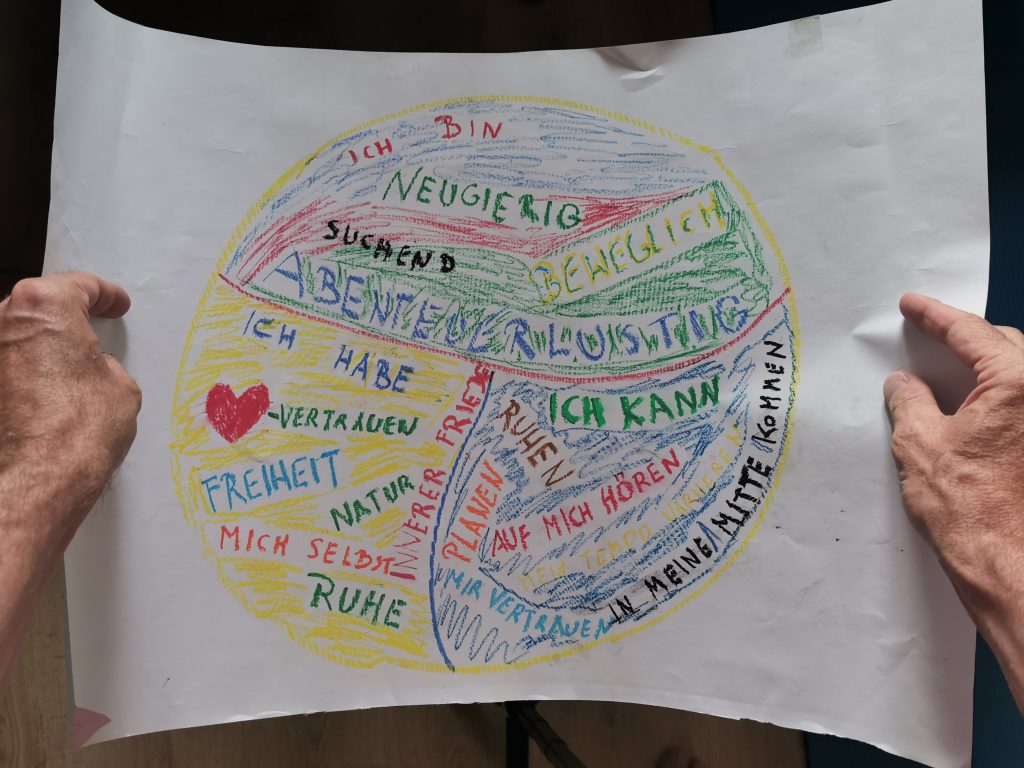 ICH BIN
NEUGIERIG
SUCHEND
BEWEGLICH
ABENTEUERLUSTIG
ICH HABE
-VERTRAUEN
FREIHEIT
NATUR
MICH SELBST
RUHE
INNERER FRIEDE
ICH KANN
RUHEN
PLANEN
AUF MICH HÖREN
MEIN TEMPO
MIR VERTRAUEN
IN MEINE MITTE KOMMEN